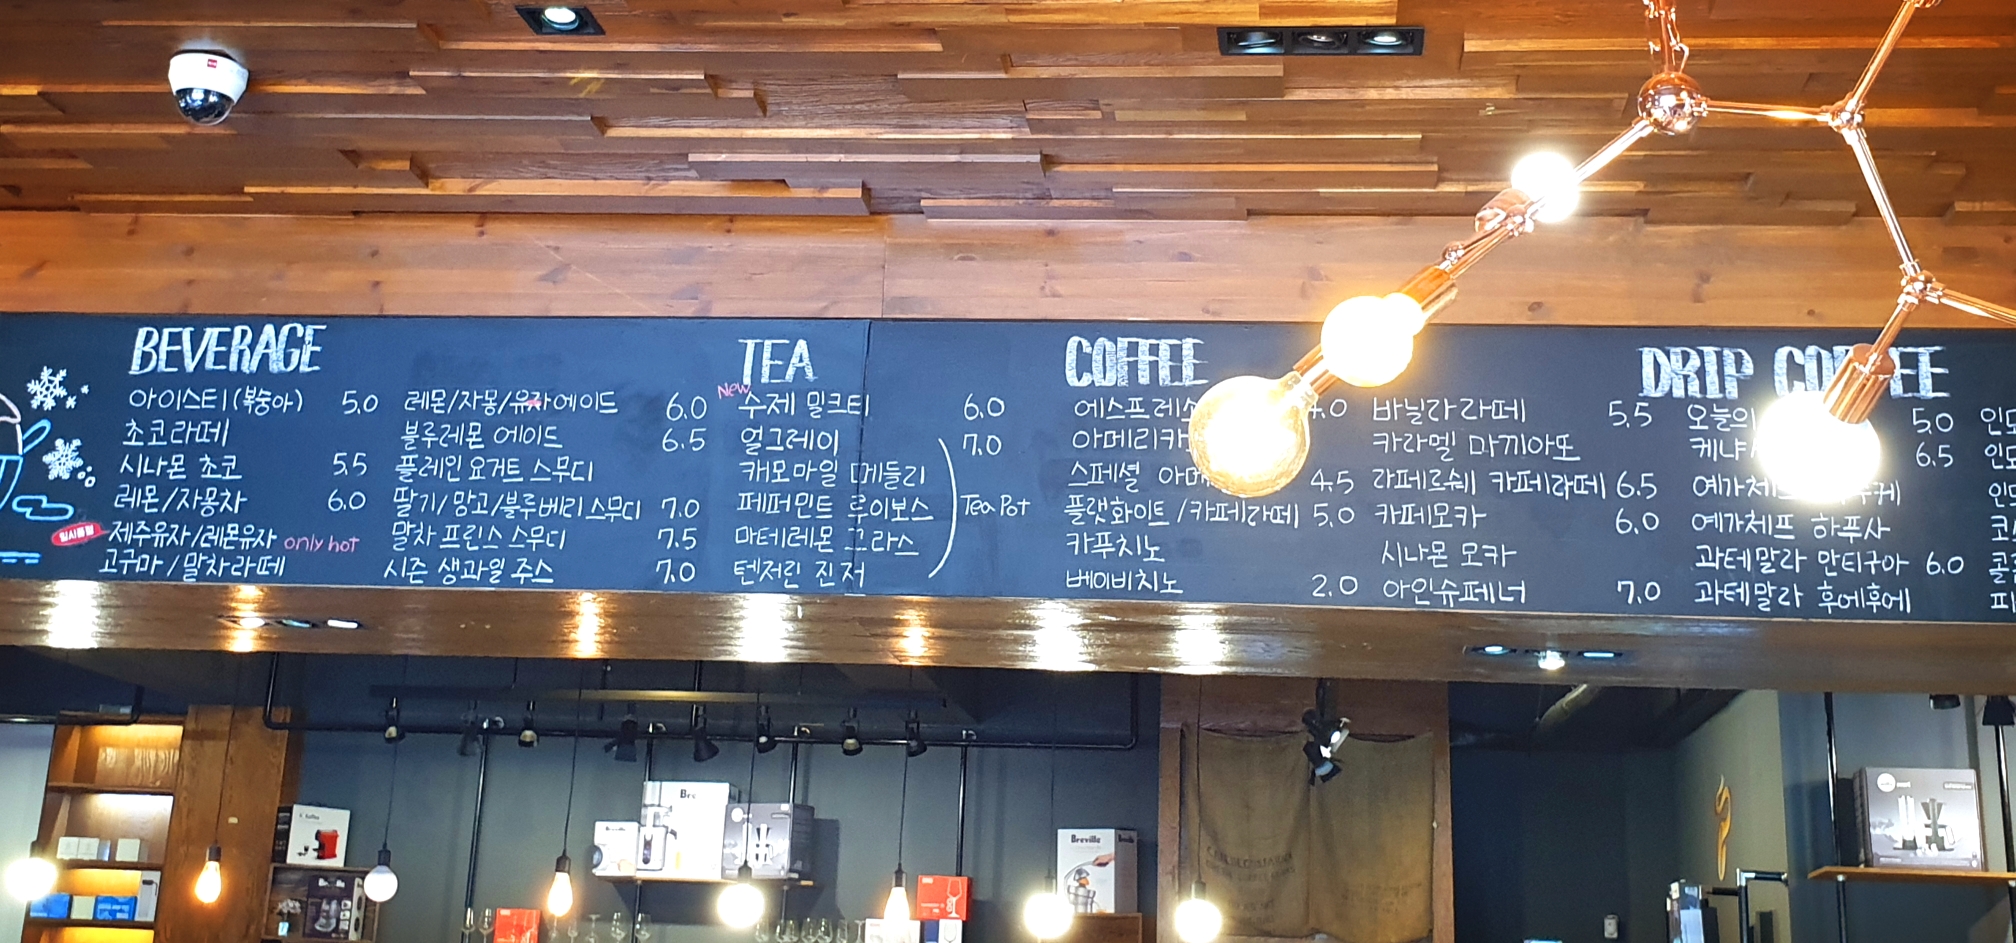 BEVERAGE
아이스티(복숭아) 5.0
초코라떼
시나몬 초코 5.5
레몬/자몽차 6.0
일시품절 제주유자/레몬유자 only hot
고구마/말차라떼
레몬/자몽/유자에이드 6.0
블루레몬 에이드 6.5
플레인요거트 스무디
딸기/망고/블루베리스무디 7.0
말차 프린스 스무디 7.5
시즌 생과일 주스 7.0
TEA
New 수제 밀크티 6.0
얼그레이 7.0
캐모마일 메들리
페퍼민트 루이보스 Tea Pot
마테레몬 그라스
텐저린 진저
COFFEE
에스프레소 4.0
아메리카
스페셜 아메 4.5
플랫화이트/카페라떼 5.0
카푸치노
베이비치노 2.0
바닐라라떼 5.5
카라멜 마끼아또
라페르쉐 카페라떼 6.5
카페모카 6.0
시나몬 모카
아인슈페너 7.0
DRIP COFFEE
오늘의 5.0
케냐 6.5
예가체프
예가체프 하푸사
과테말라 안티구아 6.0
과테말라 후에후에
Breville